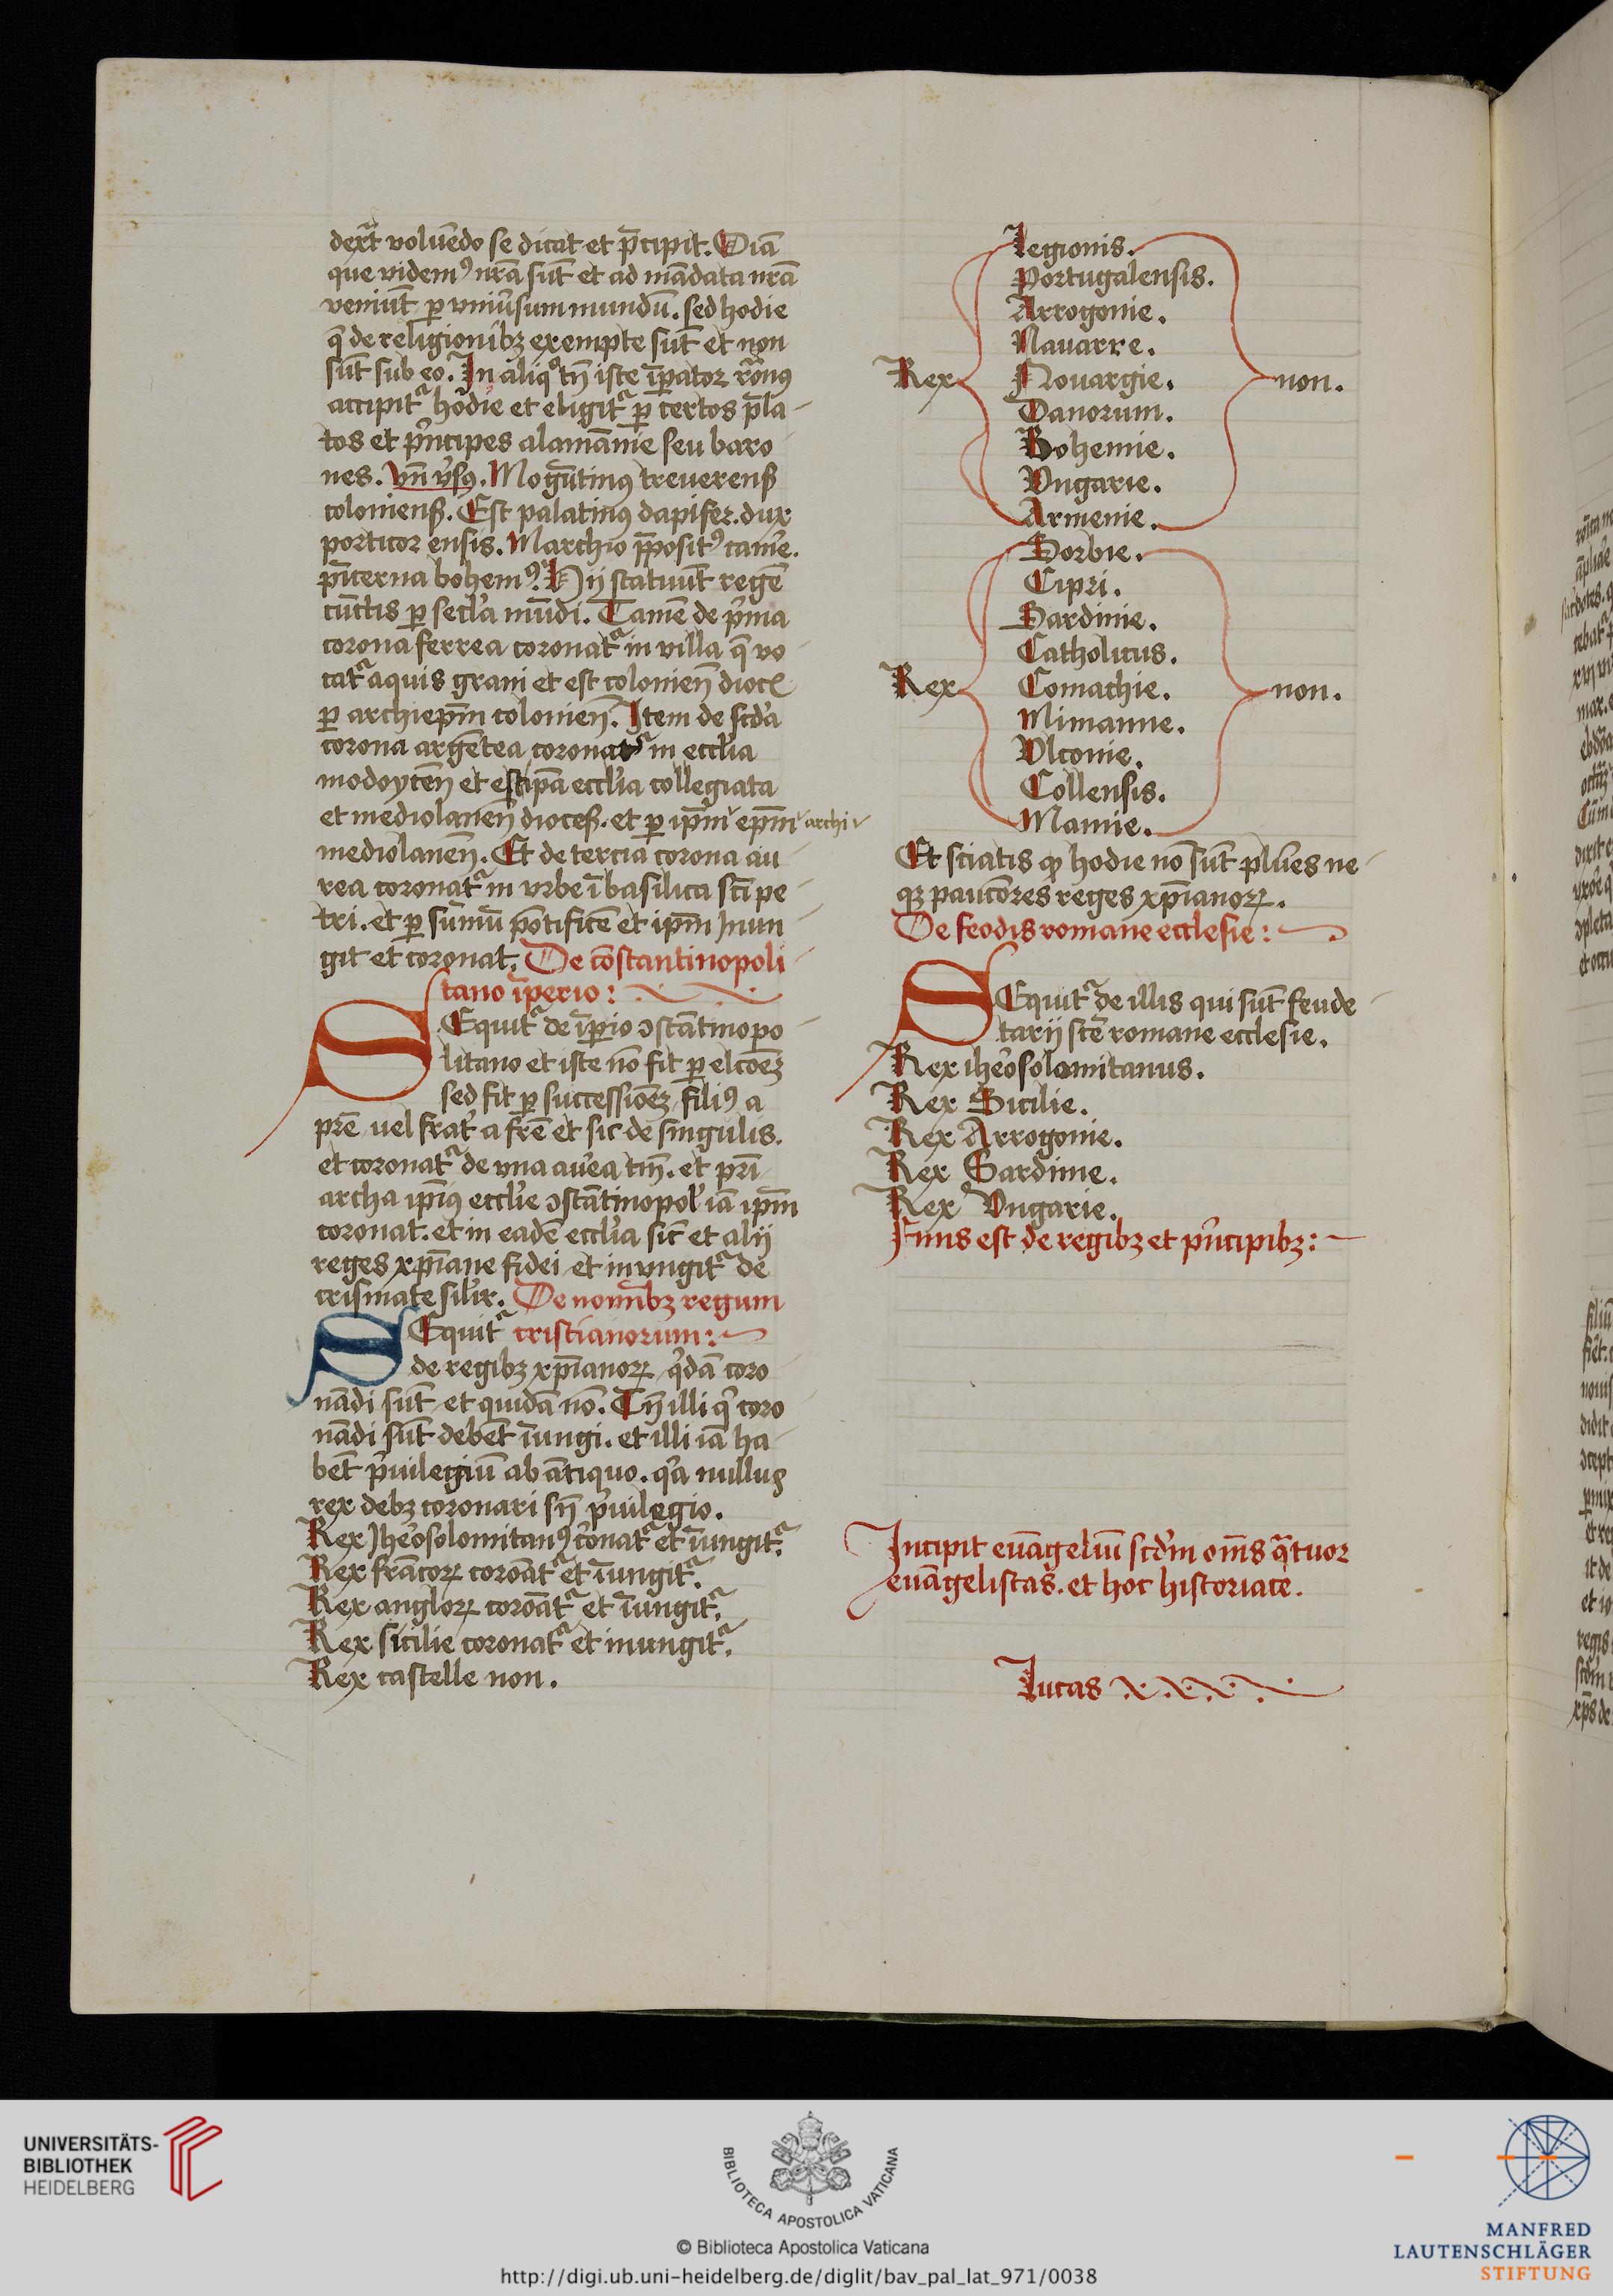 dext̄ᵃ voluēdo se dicat et p̄cipit. Oīa
que videmꝰ nr̄a sūt et ad mādata nr̄a
veniūt ꝑ vniūsum mundū. sed hodie
q̄ de religionibꝫ exempte sūt et non
sūt sub eo. In aliqᵒ tn̄ iste īꝑator rōnus
accipitᵃ hodie et eligitᵃ ꝑ certos p̄la
tos et pͥncipes alamānie seu baro
nes. vn̄ vs̓us. Mogūtinus treuerenß
colonienß. Est palatinus dapifer. dux
portitor ensis. Marchio p̄positꝰ cam̄e.
pīcerna bohemꝰ. Hij statuūt regē
cūctis ꝑ secl̓a mūdi. Tamē de pͥma
corona ferrea coronatᵃ in villa q̄ vo
catᵃ aquis grani et est colonien̄ dioc̄
ꝑ archiepm̄ colonien̄. Item de scd̓a
corona argētea coronatᵃ in eccl̓ia
modoycen̄ et est ip̄a eccl̓ia collegiata
et mediolanen̄ dioceß. et ꝑ ip̄m epm̄ archi
mediolanen̄. Et de tercia corona au
rea coronatᵃ in vrbe ī basilica scī pe
tri. et ꝑ sūmū pōtificē et ipm̄ Inun
git et coronat. De cōstantinopoli
tano īperio:
SEquitᵃ de īꝑio ꝯstātinopo
litano et iste nō fit ꝑ elcōeꝫ
sed fit ꝑ successiōeꝫ filiꝰ a
pr̄e uel frat̓ a fr̄e et sic de singulis.
et coronatᵃ de vna aur̓ea tm̄. et pr̄i
archa ip̄ius eccl̓ie ꝯstātinopol̓ iā ipm̄
coronat. et in eadē eccl̓ia sic̄ et alij
reges xp̄iane fidei et inungitᵃ de
crismate sil̓ir. De nomībꝫ regum
SEquitᵃ cristianorum:
de regibꝫ xp̄ianoꝝ qͥdā coro
nādi sūt et quidā nō. Tn̄ illi qͥ coro
nādi sūt debēt īungi. et illi iā ha
bēt pͥuilegiū ab ātiquo. qͥa nullus
rex debꝫ coronari sn̄ pͥuilegio.
Rex Jher̓osolomitanꝰ c̓onatᵃ et īungitᵃ.
Rex frācoꝝ coroātᵃ et īungitᵃ.
Rex angloꝝ coroātᵃ et īungitᵃ.
Rex sicilie coronatᵃ et inungitᵃ.
Rex castelle non.
Legionis.
Portugalensis.
Arrogonie.
Nauarre.
Rex Nouargie. non.
Danorum.
Bohemie.
Vngarie.
Armenie.
Sorbie.
Cipri.
Sardinie.
Catholicus.
Rex Comachie. non.
Mimanne.
Vltonie.
Collensis.
Mamie.
Et sciatis qͫ hodie nō sūt plūes ne
qꝫ pauc̓ores reges xp̄ianoꝝ.
De feodis romane ecclesie:
SEquitᵃ de illis qui sūt feude
tarij scē romane ecclesie.
Rex iher̓osolomitanus.
Rex Sicilie.
Rex Arrogonie.
Rex Sardinie.
Rex Vngarie.
Finis est de regibꝫ et pͥncipibꝫ:
Incipit euāgeliū scd̓m om̄s qᵃtuor
euāgelistas. et hoc historiace.
Lucas
UNIVERSITÄTS-
BIBLIOTHEK
HEIDELBERG
BIBLIOTECA APOSTOLICA VATICANA
© Biblioteca Apostolica Vaticana
http://digi.ub.uni-heidelberg.de/diglit/bav_pal_lat_971/0038
MANFRED
LAUTENSCHLÄGER
STIFTUNG